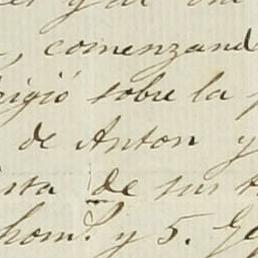 y
, comenzand
igió sobre la
de Anton y
sta de sus
hom.e y 5. Ge